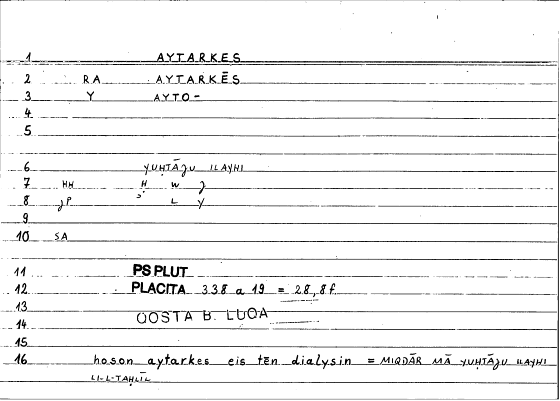 1 AYTARKES
2 RA AYTARKĒS
3 Y AYTO-
4
5
6 YUḤTĀǦU ILAYHI
7 HH Ḥ W J
8 JP L Y
9
10 SA
11 PS PLUT
12 PLACITA 338 a 19 = 28,8f.
13
QOSTA B. LUQA
14
15
16 hoson aytarkes eis tēn dialysin = MIQDĀR MĀ YUḤTĀǦU ILAYHI
LI-L-TAḤLĪL